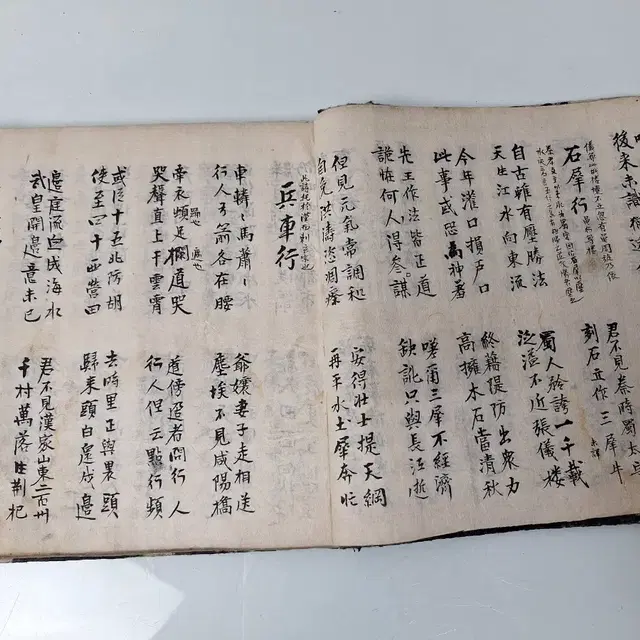 石犀行
君不見秦時蜀太
刻石立作三犀牛
自古雖有壓勝法
天生江水向東流
蜀人矜誇一千載
泛溢不近張儀樓
今年灌口損戶口
此事或恐為神羞
終藉隄防出衆力
高擁木石當清秋
先王作法皆正道
詭怪何人得參謀
嗟爾三犀不經濟
缺訛只與長江逝
但見元氣常調和
自免洪濤恣凋瘵
安得壯士提天綱
再平水土犀奔忙
兵車行
車轔〻馬蕭〻
行人弓箭各在腰
爺孃妻子走相送
塵埃不見咸陽橋
牽衣頓足欄道哭
哭聲直上干雲霄
道傍過者問行人
行人但云點行頻
或從十五北防胡
便至四十西營田
去時里正與裹頭
歸來頭白還戍邊
邊庭流血成海水
武皇開邊意未已
君不見漢家山東二百州
千村萬落生荊杞